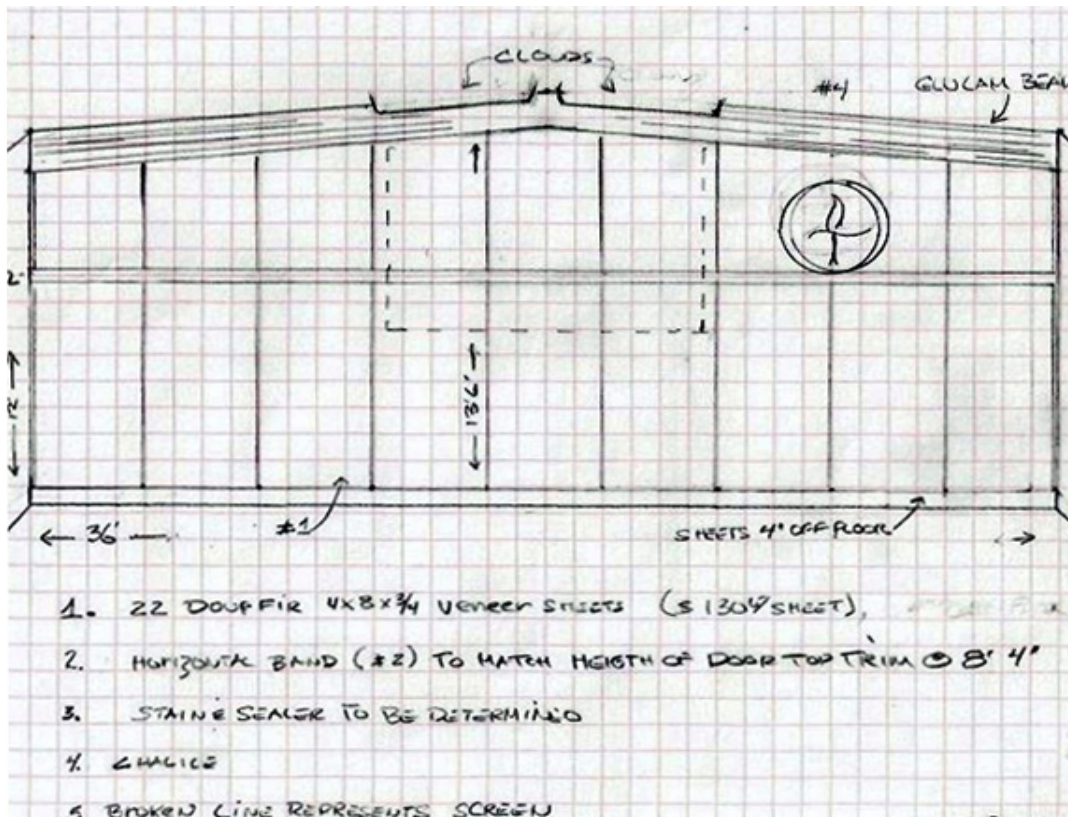 CLOUDS
#4
GLULAM BEAM
2'
12'
13'6"
36'
#1
SHEETS 4" OFF FLOOR
1. 22 DOUG FIR 4x8x3/4 VENEER SHEETS ($130 SHEET),
2. HORIZONTAL BAND (#2) TO MATCH HEIGTH OF DOOR TOP TRIM @ 8' 4"
3. STAIN & SEALER TO BE DETERMINED
4. CHALICE
5 BROKEN LINE REPRESENTS SCREEN